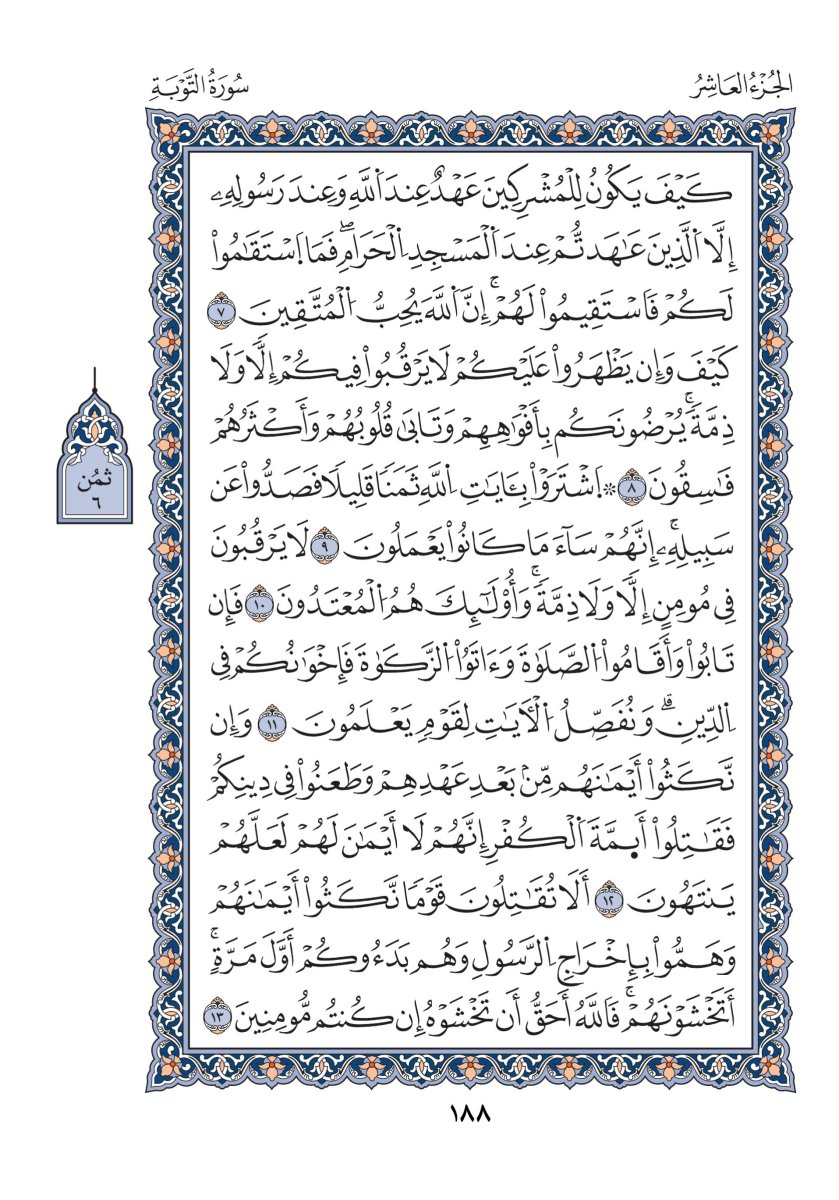 الجُزْءُ العَاشِرُ
سُورَةُ التَّوْبَةِ
كَيْفَ يَكُونُ لِلْمُشْرِكِينَ عَهْدٌ عِندَ اَ۬للَّهِ وَعِندَ رَسُولِهِۦ
إِلَّا اَ۬لَّذِينَ عَٰهَدتُّمْ عِندَ اَ۬لْمَسْجِدِ اِ۬لْحَرَامِۖ فَمَا اَ۪سْتَقَٰمُواْ
لَكُمْ فَاسْتَقِيمُواْ لَهُمْۚ إِنَّ اَ۬للَّهَ يُحِبُّ اُ۬لْمُتَّقِينَ ٧
كَيْفَ وَإِن يَظْهَرُواْ عَلَيْكُمْ لَا يَرْقُبُواْ فِيكُمْ إِلّٗا وَلَا
ذِمَّةٗۚ يُرْضُونَكُم بِأَفْوَٰهِهِمْ وَتَابَىٰ قُلُوبُهُمْ وَأَكْثَرُهُمْ
فَٰسِقُونَ ٨ ۞ اَ۪شْتَرَوْاْ بِـَٔايَٰتِ اِ۬للَّهِ ثَمَنٗا قَلِيلٗا فَصَدُّواْ عَن
سَبِيلِهِۦۚ إِنَّهُمْ سَآءَ مَا كَانُواْ يَعْمَلُونَ ٩ لَا يَرْقُبُونَ
فِي مُومِنٍ إِلّٗا وَلَا ذِمَّةٗۚ وَأُوْلَٰٓئِكَ هُمُ اُ۬لْمُعْتَدُونَ ١٠ فَإِن
تَابُواْ وَأَقَامُواْ اُ۬لصَّلَوٰةَ وَءَاتَوُاْ اُ۬لزَّكَوٰةَ فَإِخْوَٰنُكُمْ فِي
اِ۬لدِّينِۗ وَنُفَصِّلُ اُ۬لْأٓيَٰتِ لِقَوْمٖ يَعْلَمُونَ ١١ وَإِن
نَّكَثُواْ أَيْمَٰنَهُم مِّنۢ بَعْدِ عَهْدِهِمْ وَطَعَنُواْ فِي دِينِكُمْ
فَقَٰتِلُواْ أَى۪مَّةَ اَ۬لْكُفْرِ إِنَّهُمْ لَا أَيْمَٰنَ لَهُمْ لَعَلَّهُمْ
يَنتَهُونَ ١٢ أَلَا تُقَٰتِلُونَ قَوْمٗا نَّكَثُواْ أَيْمَٰنَهُمْ
وَهَمُّواْ بِإِخْرَاجِ اِ۬لرَّسُولِ وَهُم بَدَءُوكُمْ أَوَّلَ مَرَّةٍۚ
أَتَخْشَوْنَهُمْۚ فَاللَّهُ أَحَقُّ أَن تَخْشَوْهُ إِن كُنتُم مُّومِنِينَ ١٣
ثمُن
٦
١٨٨